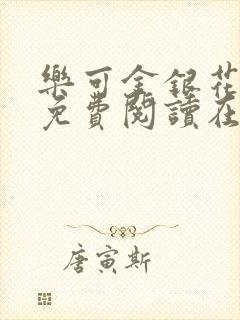 樂可金銀花
免費閱讀在
唐寅斯